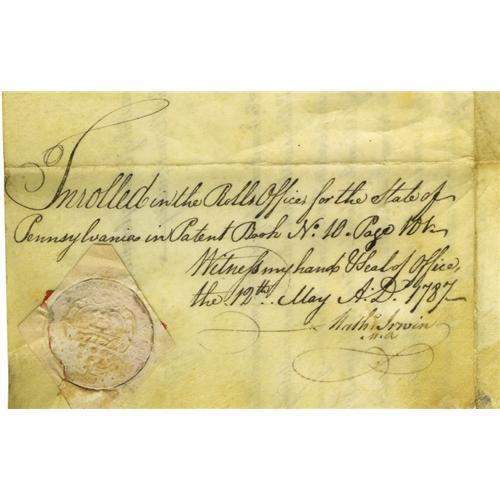 Inrolled in the Rolls Office for the State of
Pennsylvania in Patent Book No. 10. Page
Witness my hand & Seal of Office,
the 12th. May A.D. 1787
Math: Irwin
M.R